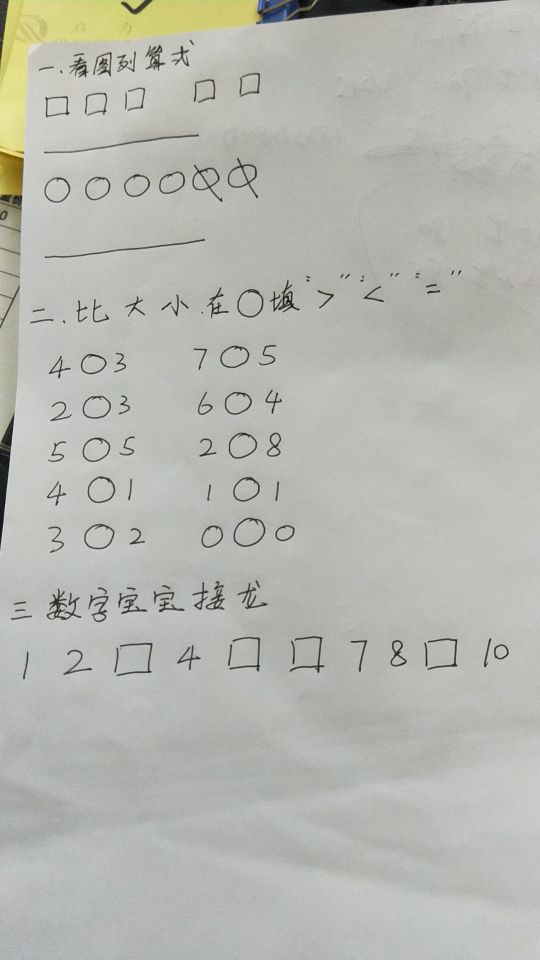 一.看图列算式
二.比大小.在○填">" "<" "="
4○3 7○5
2○3 6○4
5○5 2○8
4○1 1○1
3○2 0○0
三 数字宝宝接龙
1 2 □ 4 □ □ 7 8 □ 10